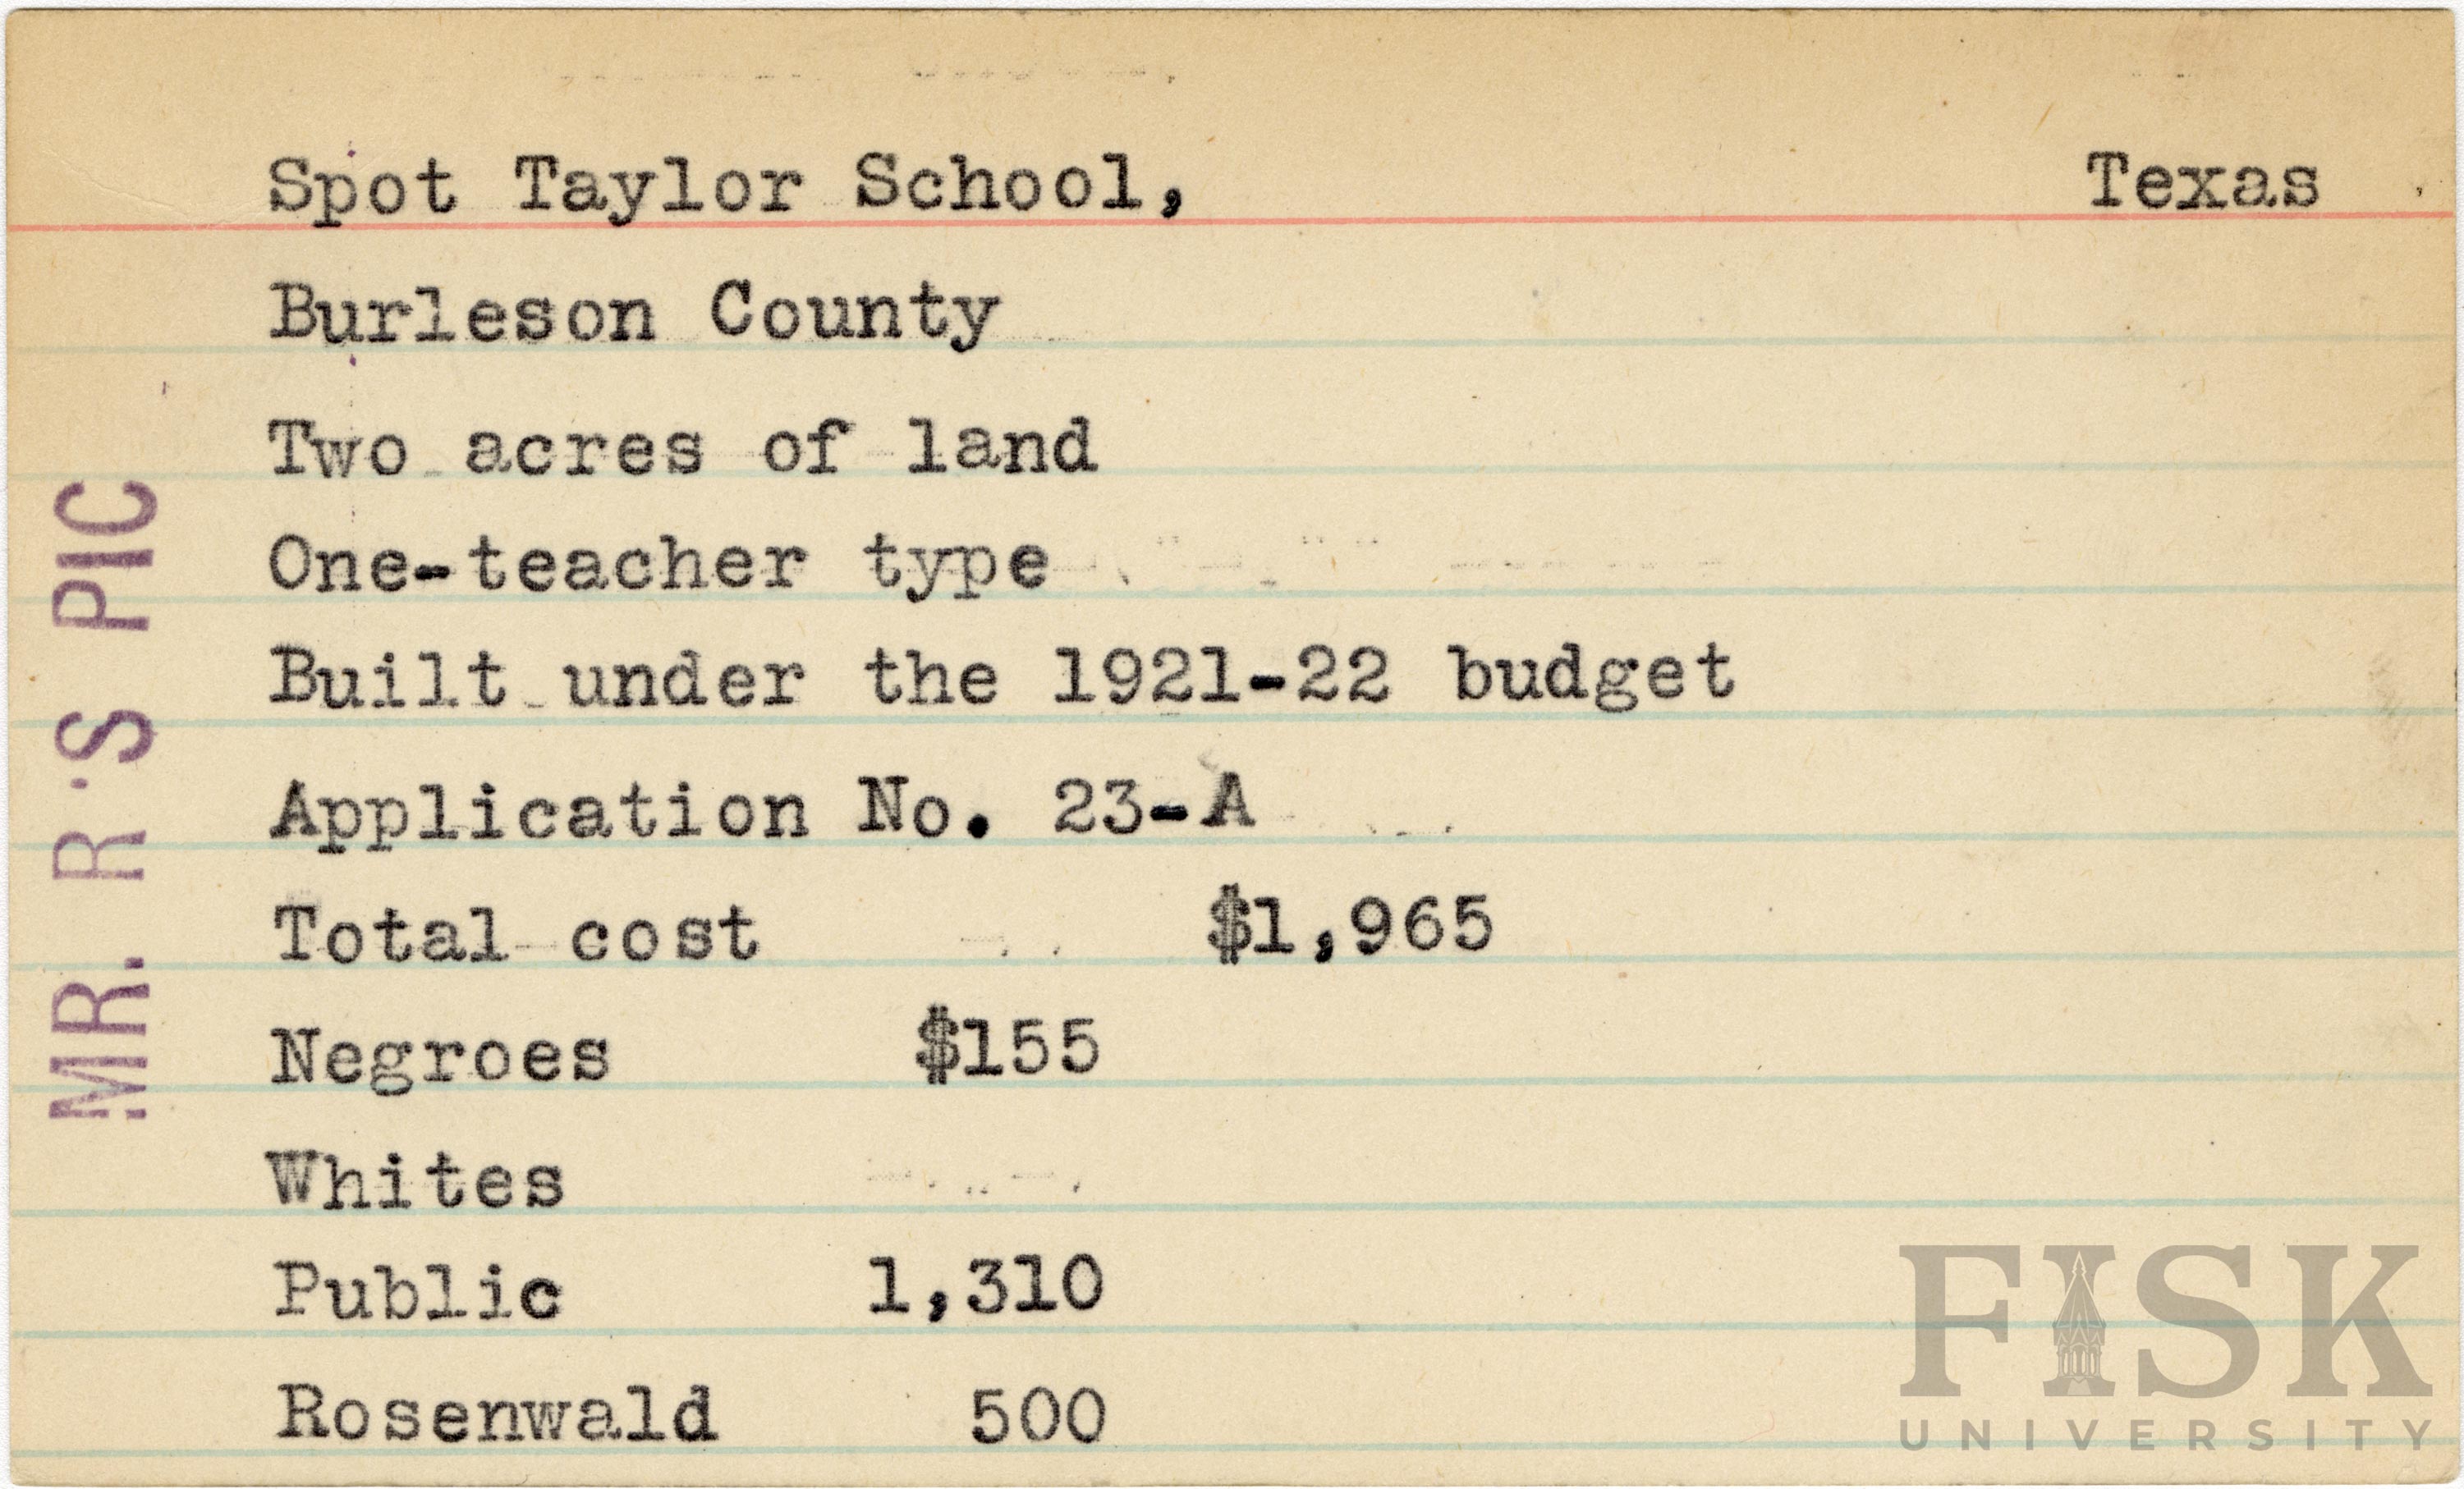 Spot Taylor School, Texas
Burleson County
Two acres of land
One-teacher type
Built under the 1921-22 budget
Application No. 23-A
Total cost $1,965
Negroes $155
Whites
Public 1,310
Rosenwald 500
MR. R'S PIC
FISK
UNIVERSITY